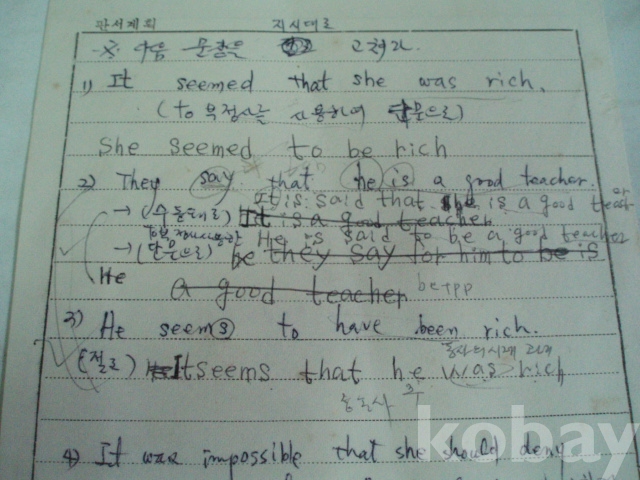 판서계획 지시대로
※ 다음 문장을 고쳐라.
1) It seemed that she was rich.
(to 부정사를 사용하여 단문으로)
She seemed to be rich
2) They say that he is a good teacher.
It is said that he is a good teacher
→ (수동태로) It is a good teacher
He is said to be a good teacher
→ (단문으로) be they say for him to be is
He a good teacher be+pp
3) He seems to have been rich.
동사의 시제 과거
(절로) It seems that he was rich
동사 주
4) It was impossible that she should deny
kobay